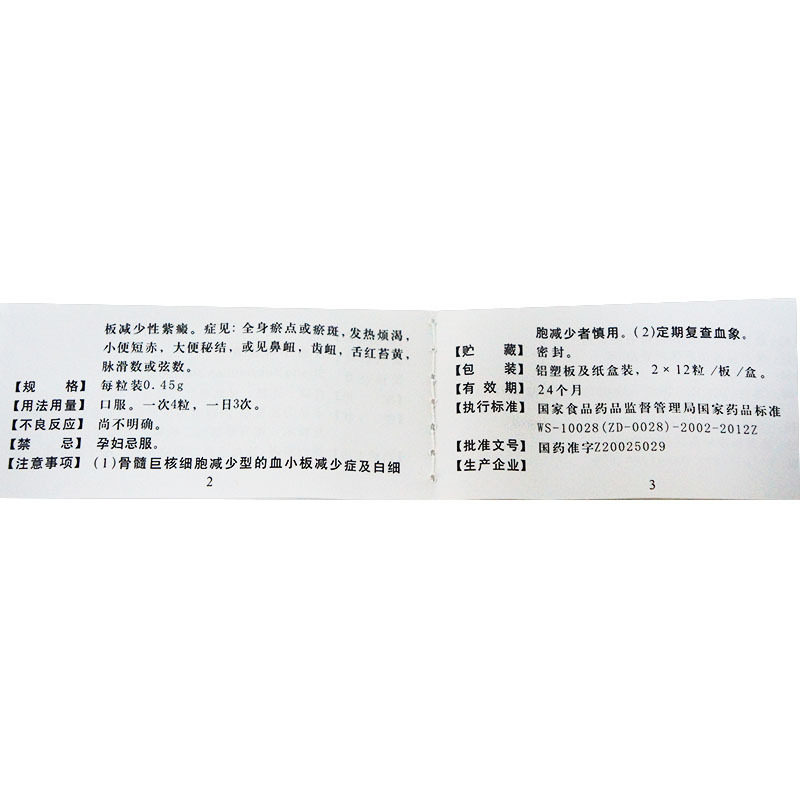 板减少性紫癜。症见:全身瘀点或瘀斑,发热烦渴,
小便短赤,大便秘结,或见鼻衄,齿衄,舌红苔黄,
脉滑数或弦数。
【规 格】 每粒装0.45g
【用法用量】 口服。一次4粒,一日3次。
【不良反应】 尚不明确。
【禁 忌】 孕妇忌服。
【注意事项】 (1)骨髓巨核细胞减少型的血小板减少症及白细
2
胞减少者慎用。(2)定期复查血象。
【贮 藏】 密封。
【包 装】 铝塑板及纸盒装,2×12粒/板/盒。
【有 效 期】 24个月
【执行标准】 国家食品药品监督管理局国家药品标准
WS-10028(ZD-0028)-2002-2012Z
【批准文号】 国药准字Z20025029
【生产企业】
3